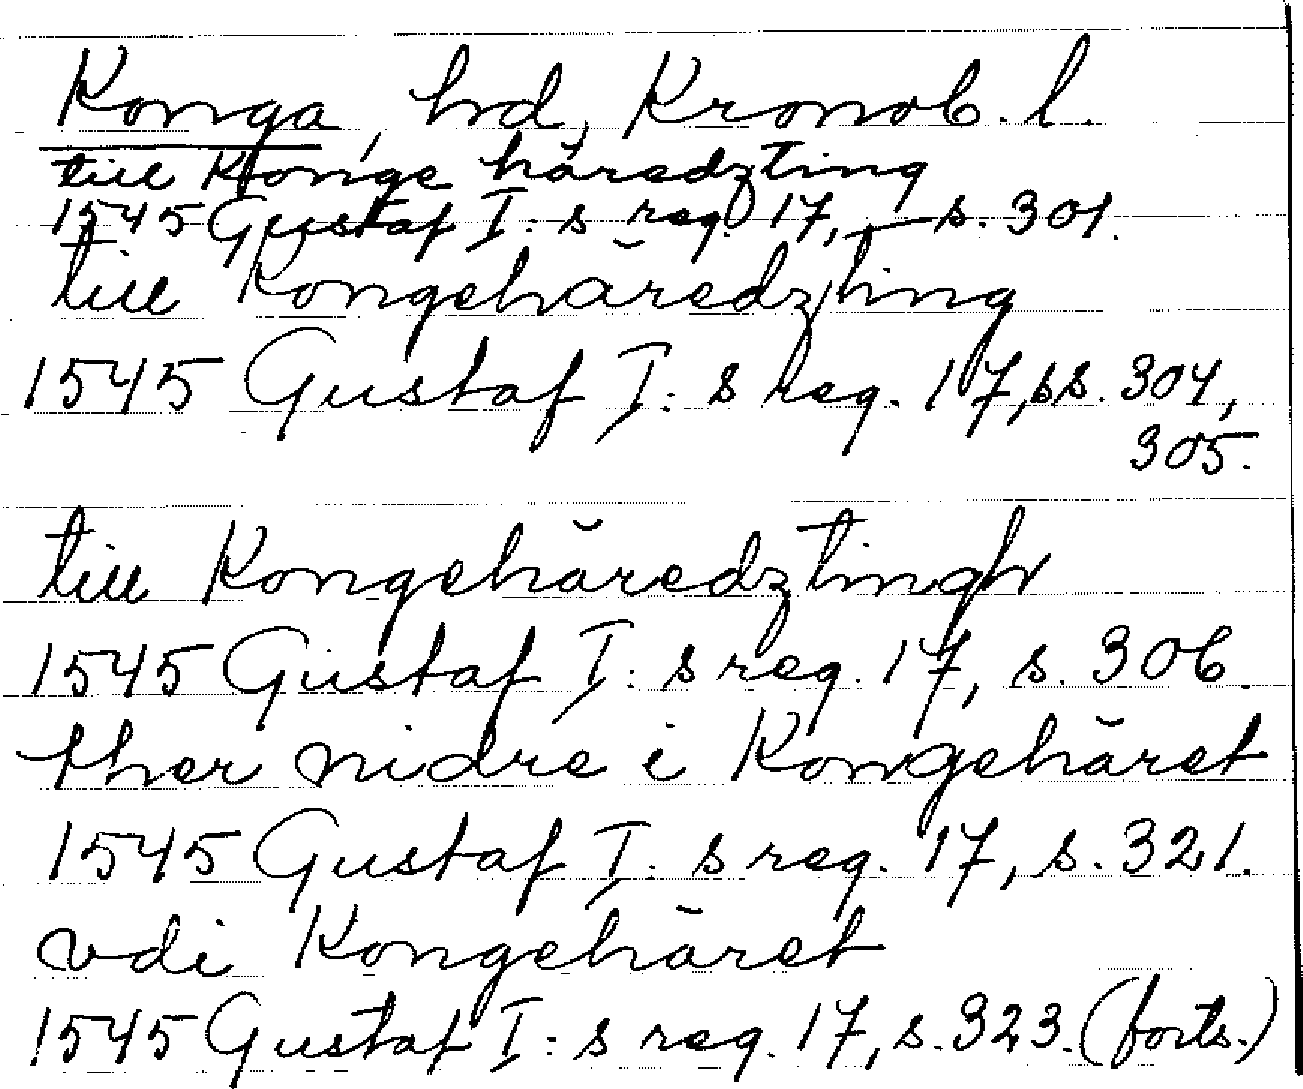 Konga, hrd, Kronob. l.
till Konge häredzting
1545 Gustaf I: s reg. 17, s. 301.
till Kongehäredzting
1545 Gustaf I: s reg. 17, ss. 304,
305.
till Kongehäredztingh
1545 Gustaf I: s reg. 17, s. 306.
ther nidre i Kongehäret
1545 Gustaf I: s reg. 17, s. 321.
vdi Kongehäret
1545 Gustaf I: s reg. 17, s. 323. (forts.)